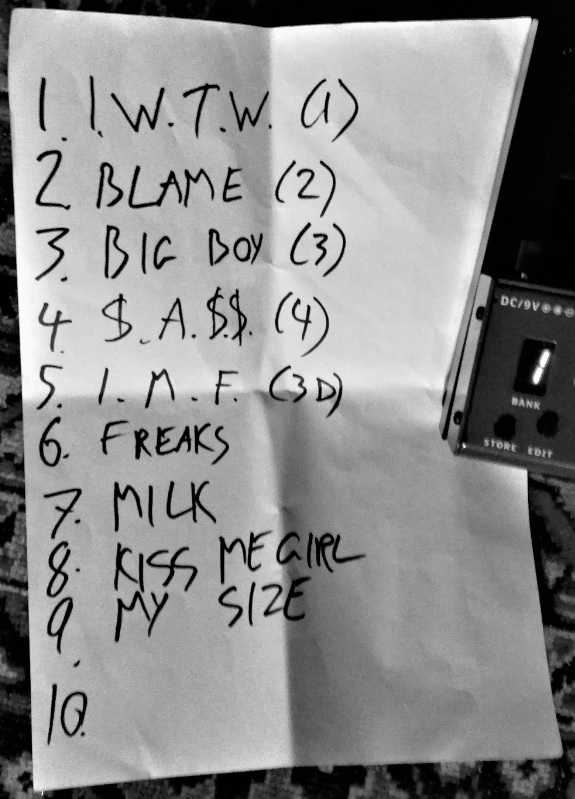 1. I.W.T.W. (1)
2. BLAME (2)
3. BIG BOY (3)
4. $.A.$$. (4)
5. I.M.F. (3D)
6. FREAKS
7. MILK
8. KISS ME GIRL
9. MY SIZE
10.
DC/9V
1
BANK
STORE EDIT